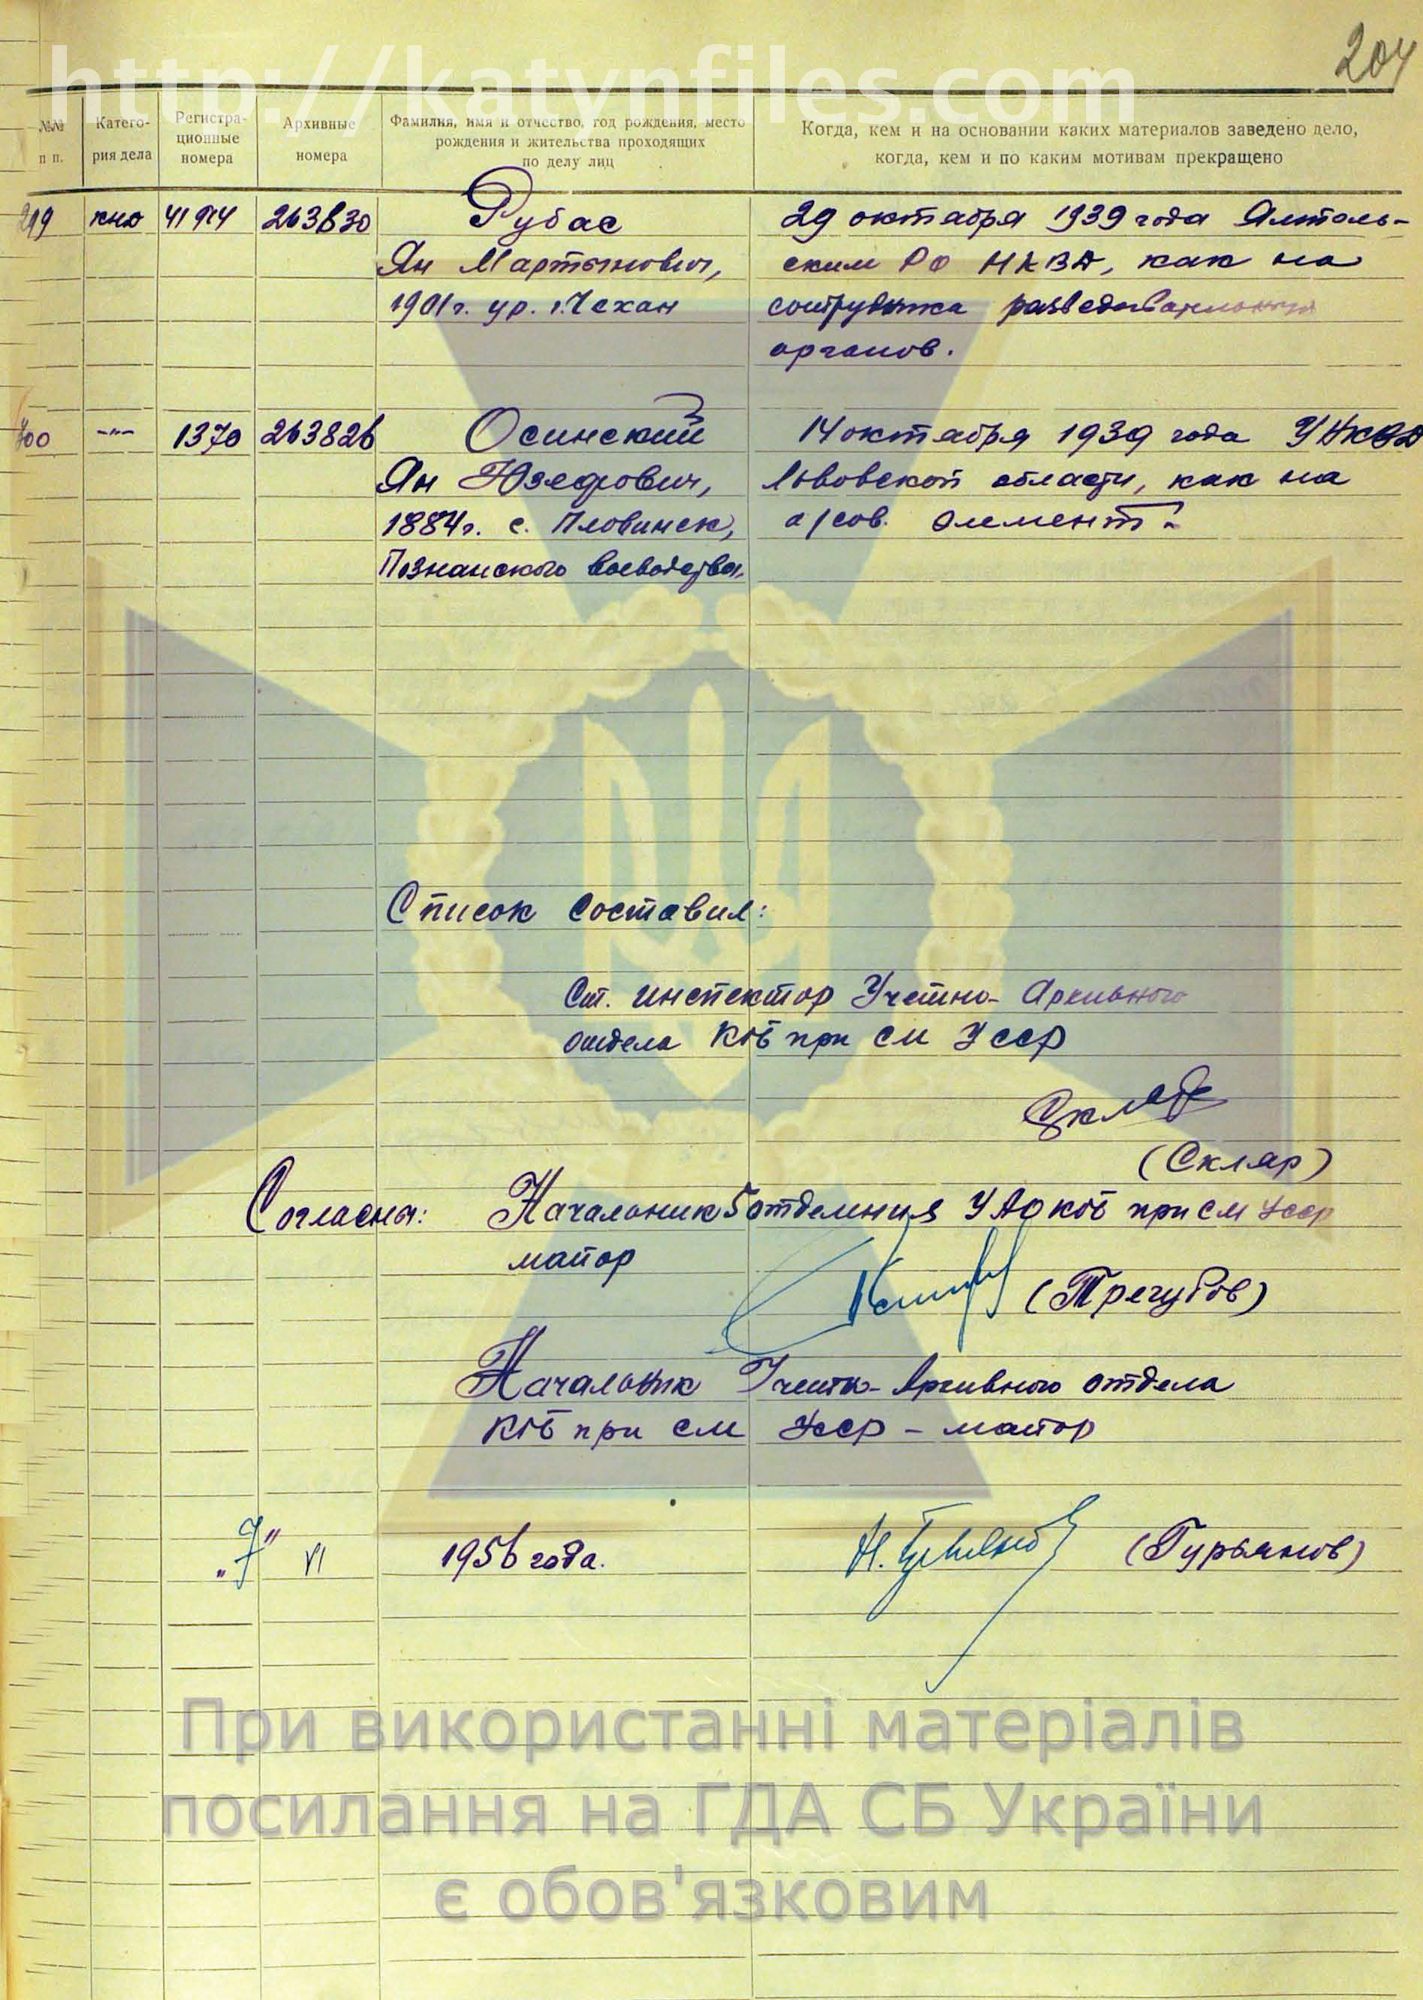 http://katynfiles.com
204
№№ п п.
Катего-
рия дела
Регистра-
ционные
номера
Архивные
номера
Фамилия, имя и отчество, год рождения, место
рождения и жительства проходящих
по делу лиц
Когда, кем и на основании каких материалов заведено дело,
когда, кем и по каким мотивам прекращено
263830 Рубас 29 октября 1939 года
Ян Мартынович, ским РО НКВД, как на
1901г. ур. г. Чехан сотрудника разведовательных
органов.
700 -"- 1370 263826 Осинский 14 октября 1939 года УНКВД
Ян Юзефович, Львовской области, как на
1884г. с. Пловинск, а/сов. элемент.
Познанского воеводства.
Список составил:
Ст. инспектор Учетно-Архивного
отдела КГБ при СМ УССР
Скляр
(Скляр)
Согласны: Начальник 5 отделения УАО КГБ при СМ УССР
майор
(Трегубов)
Начальник Учетно-Архивного отдела
КГБ при СМ УССР - майор
"7" VI 1956 года. Н. Гурьянов (Гурьянов)
При використанні матеріалів
посилання на ГДА СБ України
є обов'язковим